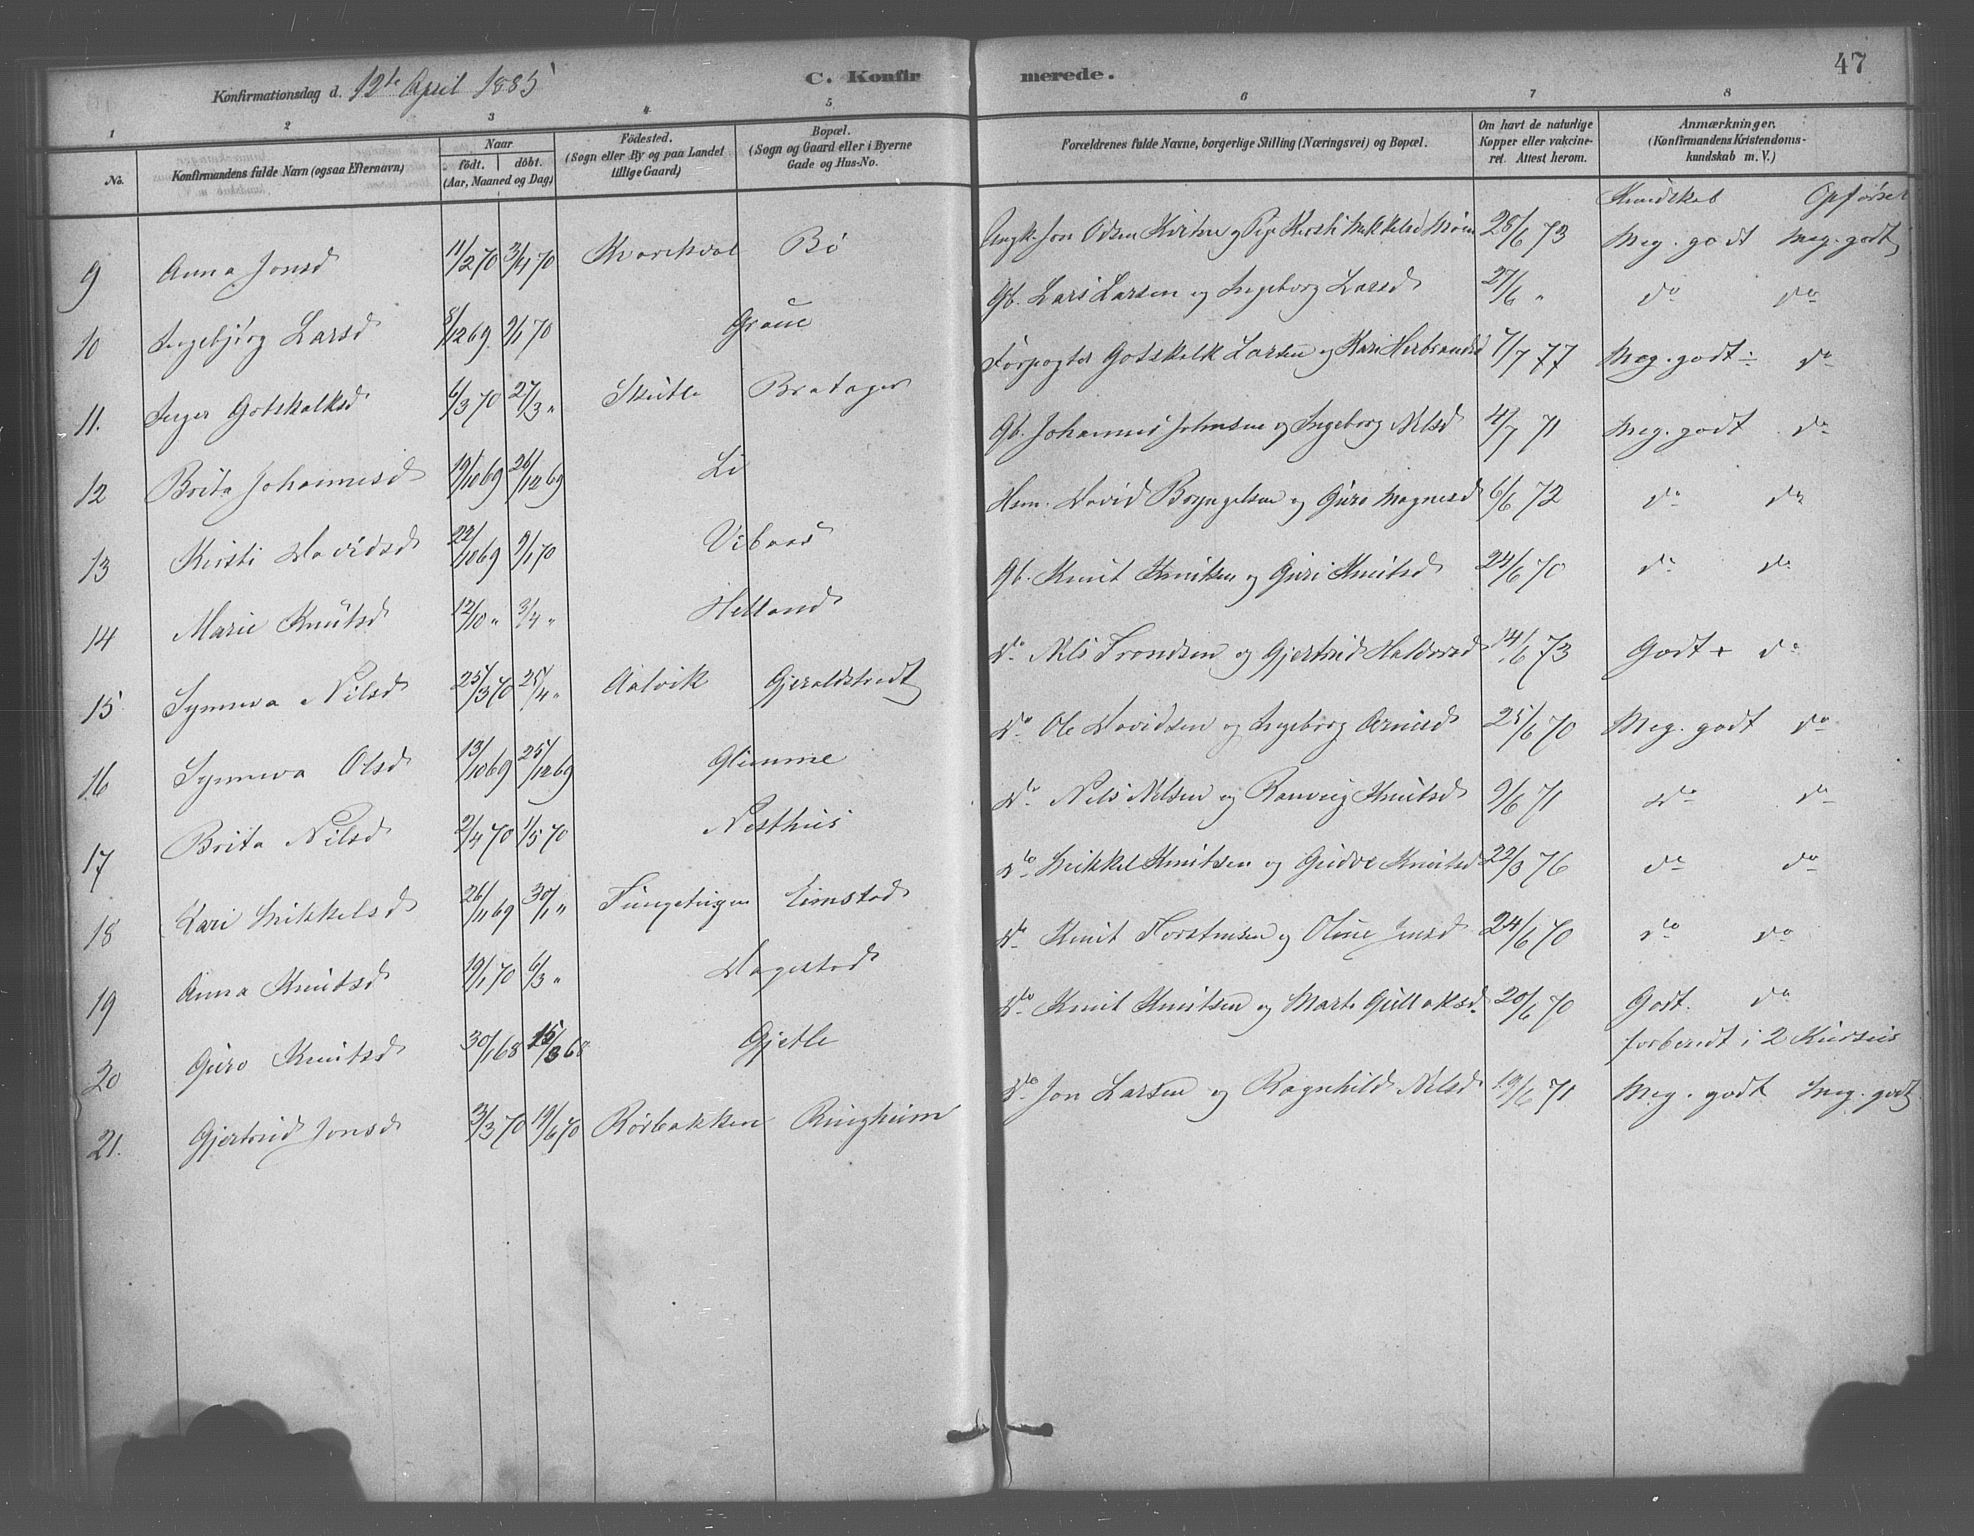 47
Konfirmationsdag d. 12te April 1885
C. Konfirmerede.
1 2 3 4 5 6 7 8
No.
Konfirmandens fulde Navn (ogsaa Efternavn)
Naar
födt. döbt.
(Aar, Maaned og Dag)
Födested.
(Sogn eller By og paa Landet
tillige Gaard)
Bopæl.
(Sogn og Gaard eller i Byerne
Gade og Hus-No.
Forældrenes fulde Navne, borgerlige Stilling (Næringsvei) og Bopæl.
Om havt de naturlige
Kopper eller vakcine-
ret. Attest herom.
Anmærkninger.
(Konfirmandens Kristendoms-
kundskab m. V.)
Kundskab Opførsel
9 Anna Jonsd 11/2 70 3/4 70 Kvarekval Bö Ungk. Jon Odsen og Pige Kirsti Mikkelsd 28/6 73 Meg. godt Meg. godt
10 Ingebjörg Larsd 8/12 69 2/1 70 Graue Gb. Lars Larsen og Ingeborg Larsd 27/6 " do do
11. Inger Gotskalksd 6/3 70 27/3 " Skutle Bratager Forpagter Gotskalk Larsen og Kari Herbrandsd 7/7 77 Meg. godt ÷ do
12 Brita Johannesd 19/10 69 26/12 69 Li Gb. Johannes Johnsen og Ingeborg Nilsd 4/7 71 Meg. godt do
13 Kirsti Davidsd 22/10 69 9/1 70 Vibaas Hsm. David Brynjelsen og Guro Magnesd 6/6 72 do do
14 Marie Knutsd 12/10 " 3/4 " Helland Gb. Knut Knutsen og Guri Knutsd 24/6 70 do do
15 Synneva Nilsd 25/3 70 25/4 " Aalvik Gjeraldstvedt do Nils Trondsen og Gjertrud Haldorsd 14/6 73 Godt + do
16 Synneva Olsd 13/10 69 25/12 69 Glimme do Ole Davidsen og Ingeborg Arnesd 25/6 70 Meg. godt do
17 Brita Nilsd 2/4 70 1/5 70 Nesthus do Nils Nilsen og Ranveig Knutsd 9/6 71 do do
18 Kari Mikkelsd 26/11 69 30/1 " Tungeteigen Eimstad do Mikkel Knutsen og Gudve Knutsd 22/3 76 do do
19 Anna Knutsd 19/1 70 6/3 " Dagestad do Knut Torstensen og Oline Jensd 24/6 70 do do
20 Guro Knutsd 30/1 68 15/3 68 Gjetle do Knut Knutsen og Marta Gullaksd. 20/6 70 Godt. do
forberedt i 2 Kursus
21. Gjertrud Jonsd 3/3 70 19/6 70 Rörbakken Ringheim do Jon Larsen og Ragnhild Nilsd 19/6 71 Meg. godt Meg. godt